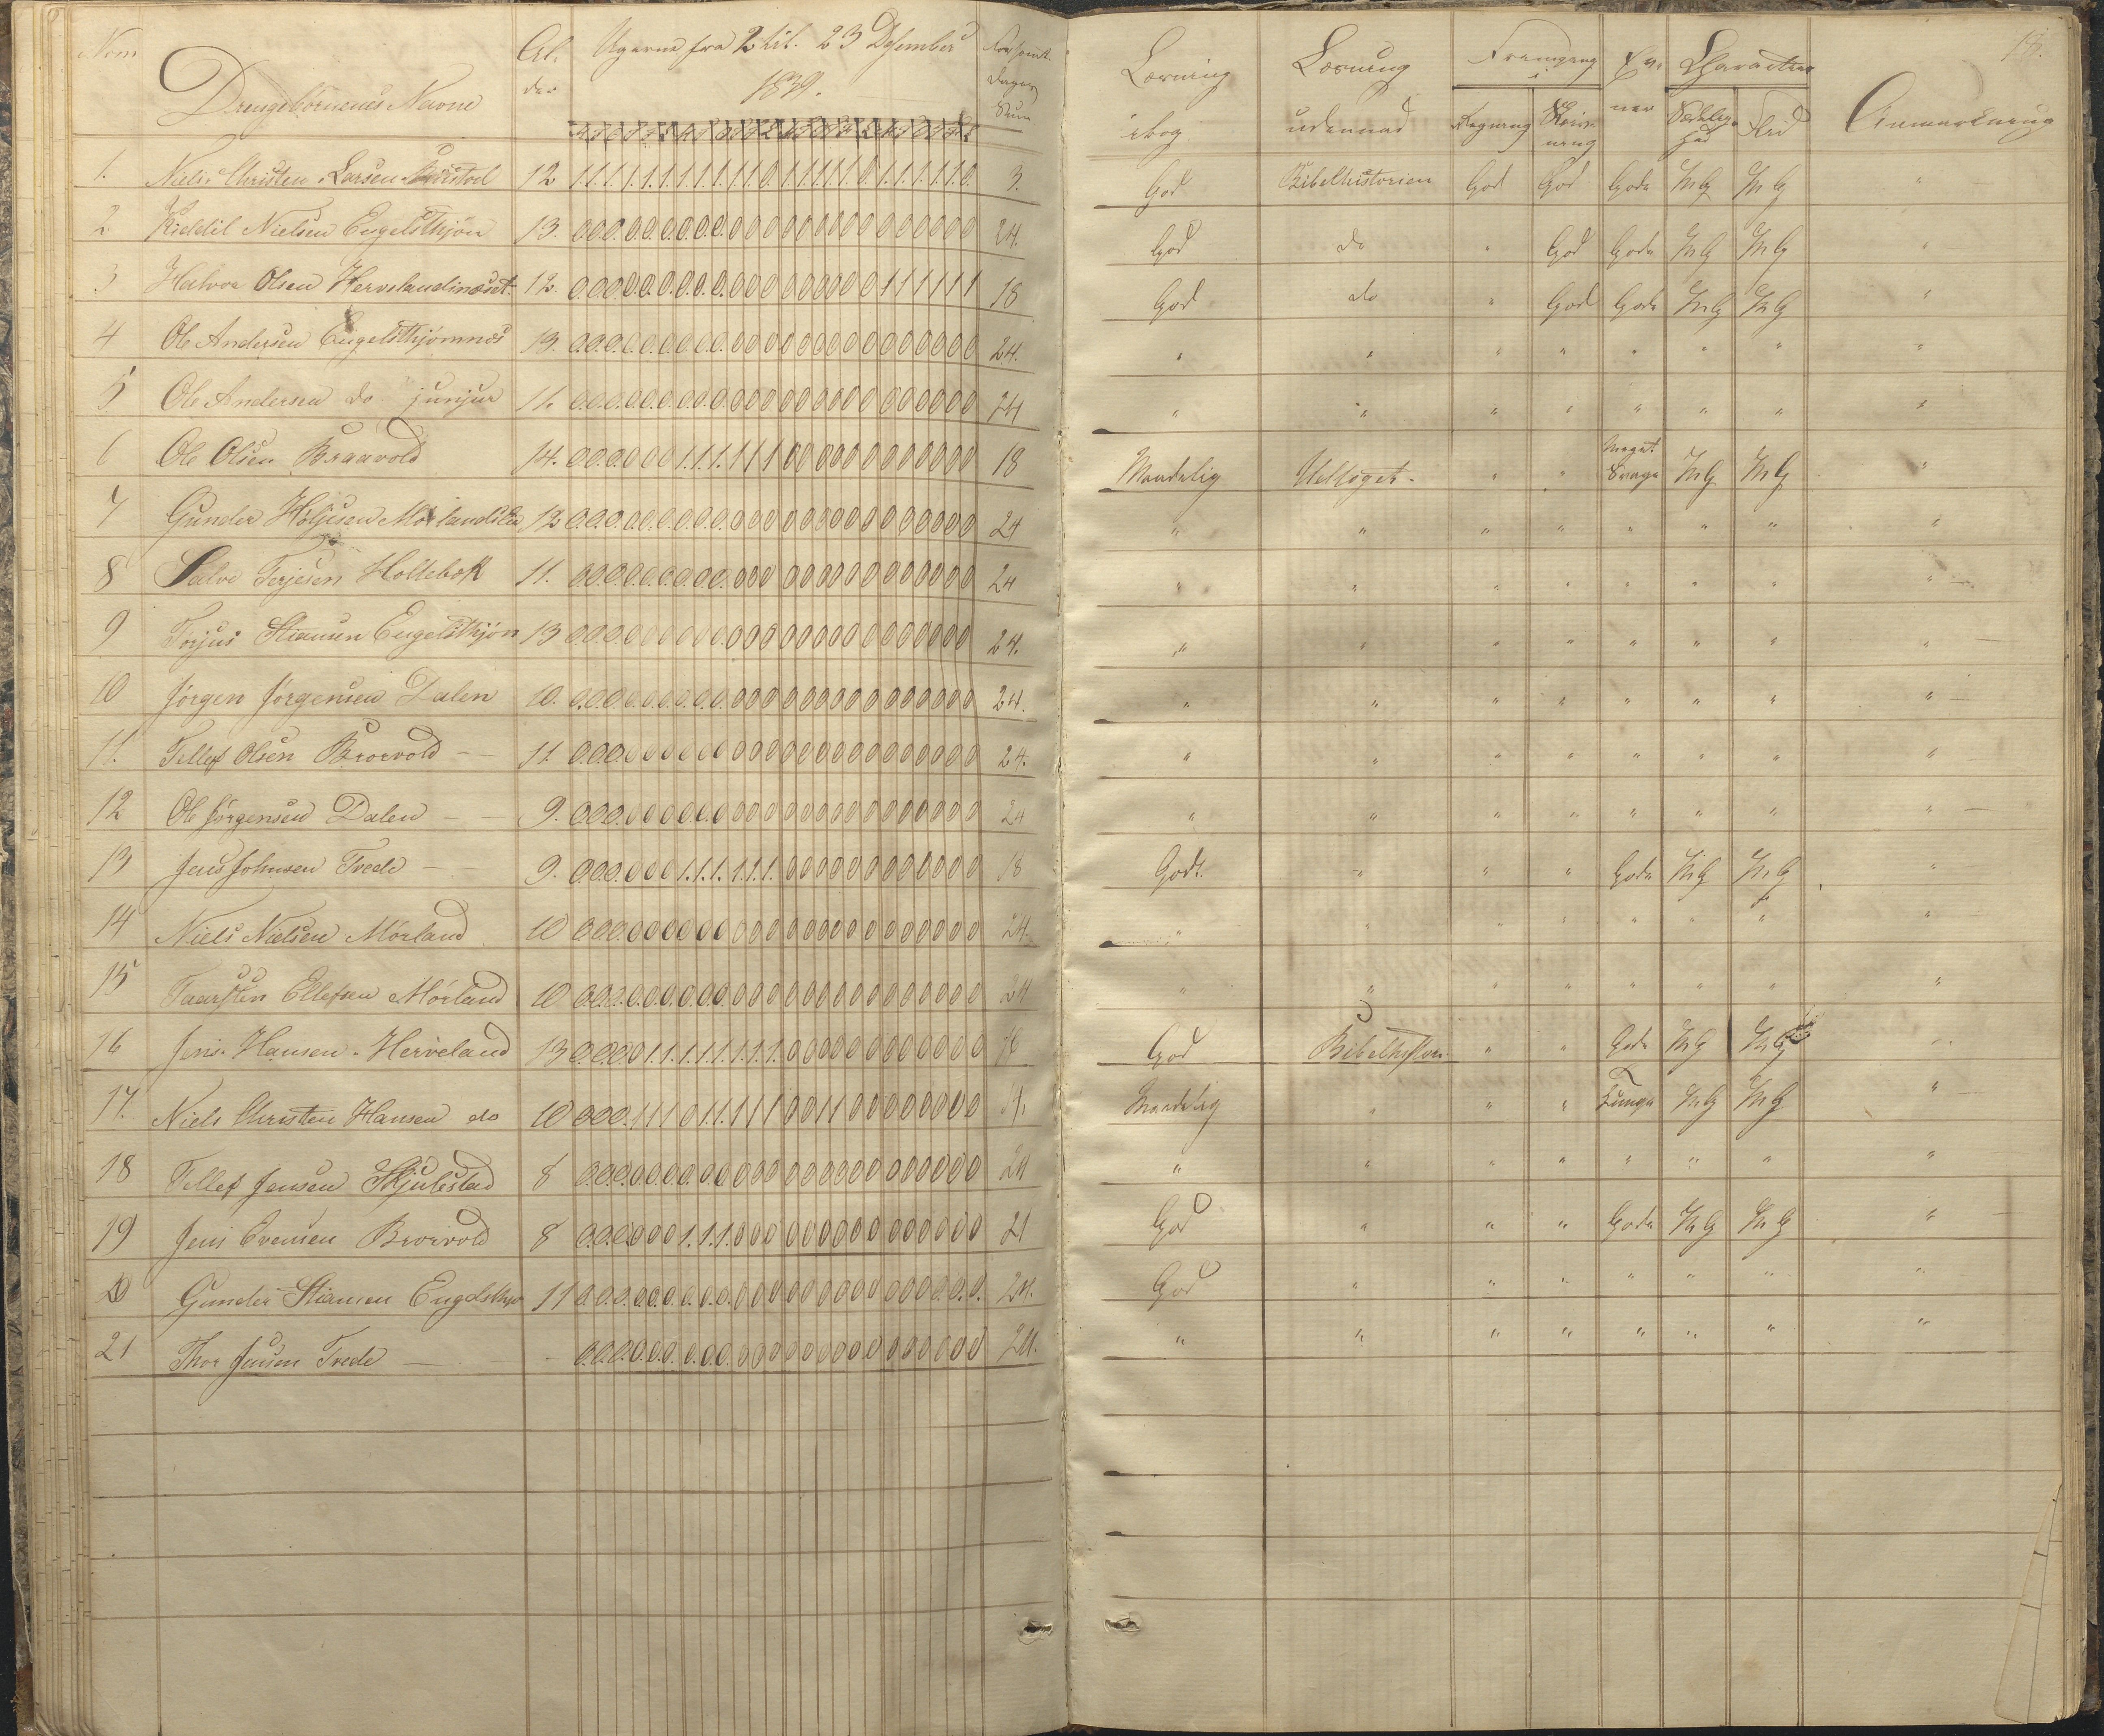 Num Drengebørnenes Navne Al- der Ugerne fra 2 til 23 Desember 1839. Forsømt. Dages Sum
Læsning i bog Læsning udenad Fremgang i Regning Skriv- ning Ev- ner Character Sædelig- hed Flid Anmærkning 13.
1. Niels Christen Larsen 12 1.1.1.1.1.1.1.1.1.1.1.0.1.1.1.1.1.0.1.1.1.1.1.0. 3. God Bibelhistorien God God Gode MG MG "
2 Kieddil Nielsen Engelsthjøn 13. 0.0.0.0.0.0.0.0.0.000000000000000 24. God do " God Gode MG MG "
3 Halvor Olsen 12. 0.0.0.0.0.0.0.0.0.000000000111111 18 God do " God Gode MG MG "
4 Ole Andersen Engelsthjømnes 13. 0.0.0.0.0.0.0.0.0.000000000000000 24. " " " " " " " "
5 Ole Andersen do junjur 11. 0.0.0.0.0.0.0.0.0.000000000000000 24 " " " " " " " "
6 Ole Olsen Braavold 14. 0.0.0.0.0.0.1.1.1.111000000000000 18 Maadelig " " Meget Svage MG MG "
7 Gunder Holjesen 12 0.0.0.0.0.0.0.0.0.000000000000000 24 " " " " " " " "
8 Salve Terjesen Hollebok 11. 0.0.0.0.0.0.0.0.0.000000000000000 24 " " " " " " " "
9 Torjus Stiansen Engelsthjøn 13 0.0.0.0.0.0.0.0.0.000000000000000 24. " " " " " " " "
10 Jørgen Jørgensen Dalen 10. 0.0.0.0.0.0.0.0.0.000000000000000 24. " " " " " " " "
11. Tellef Olsen Brorvold - 11 0.0.0.000000000000000000000 24. " " " " " " " "
12 Ole Jørgensen Dalen - 9. 0.0.0.000000000000000000000 24 " " " " " " " "
13 Jens Johnsen Trede - 9. 0.0.0.0001.1.1.1.1.1.000000000000 18 Godt. " " " Gode MG MG "
14 Niels Nielsen Mørland 10 0.0.0.000000000000000000000 24. " " " " " " " "
15 Taarsten Ellefsen Mørland 10 0.0.0.0.0.0.0.0.0.000000000000000 24 " " " " " " " "
16 Jens Hansen Herveland 13 God " " Gode MG MG "
17. Niels Christen Hansen do 10 Maadelig " " " Tunge MG MG "
18 Tellef Jensen Skjulestad 8 0.0.0.0.0.0.0.0.0.000000000000000 24 " " " " " " " "
19 Jens Evensen Brorvold 8 0.0.0.0001.1.1.000000000000000 21 God " " " Gode MG MG "
20 Gunder Stiansen Engelsthjø 11 0.0.0.0.0.0.0.0.0.000000000000000 24. God " " " " " " "
21 Thor Jensen Trede - 0.0.0.0.0.0.0.0.0.000000000000000 24. " " " " " " " "